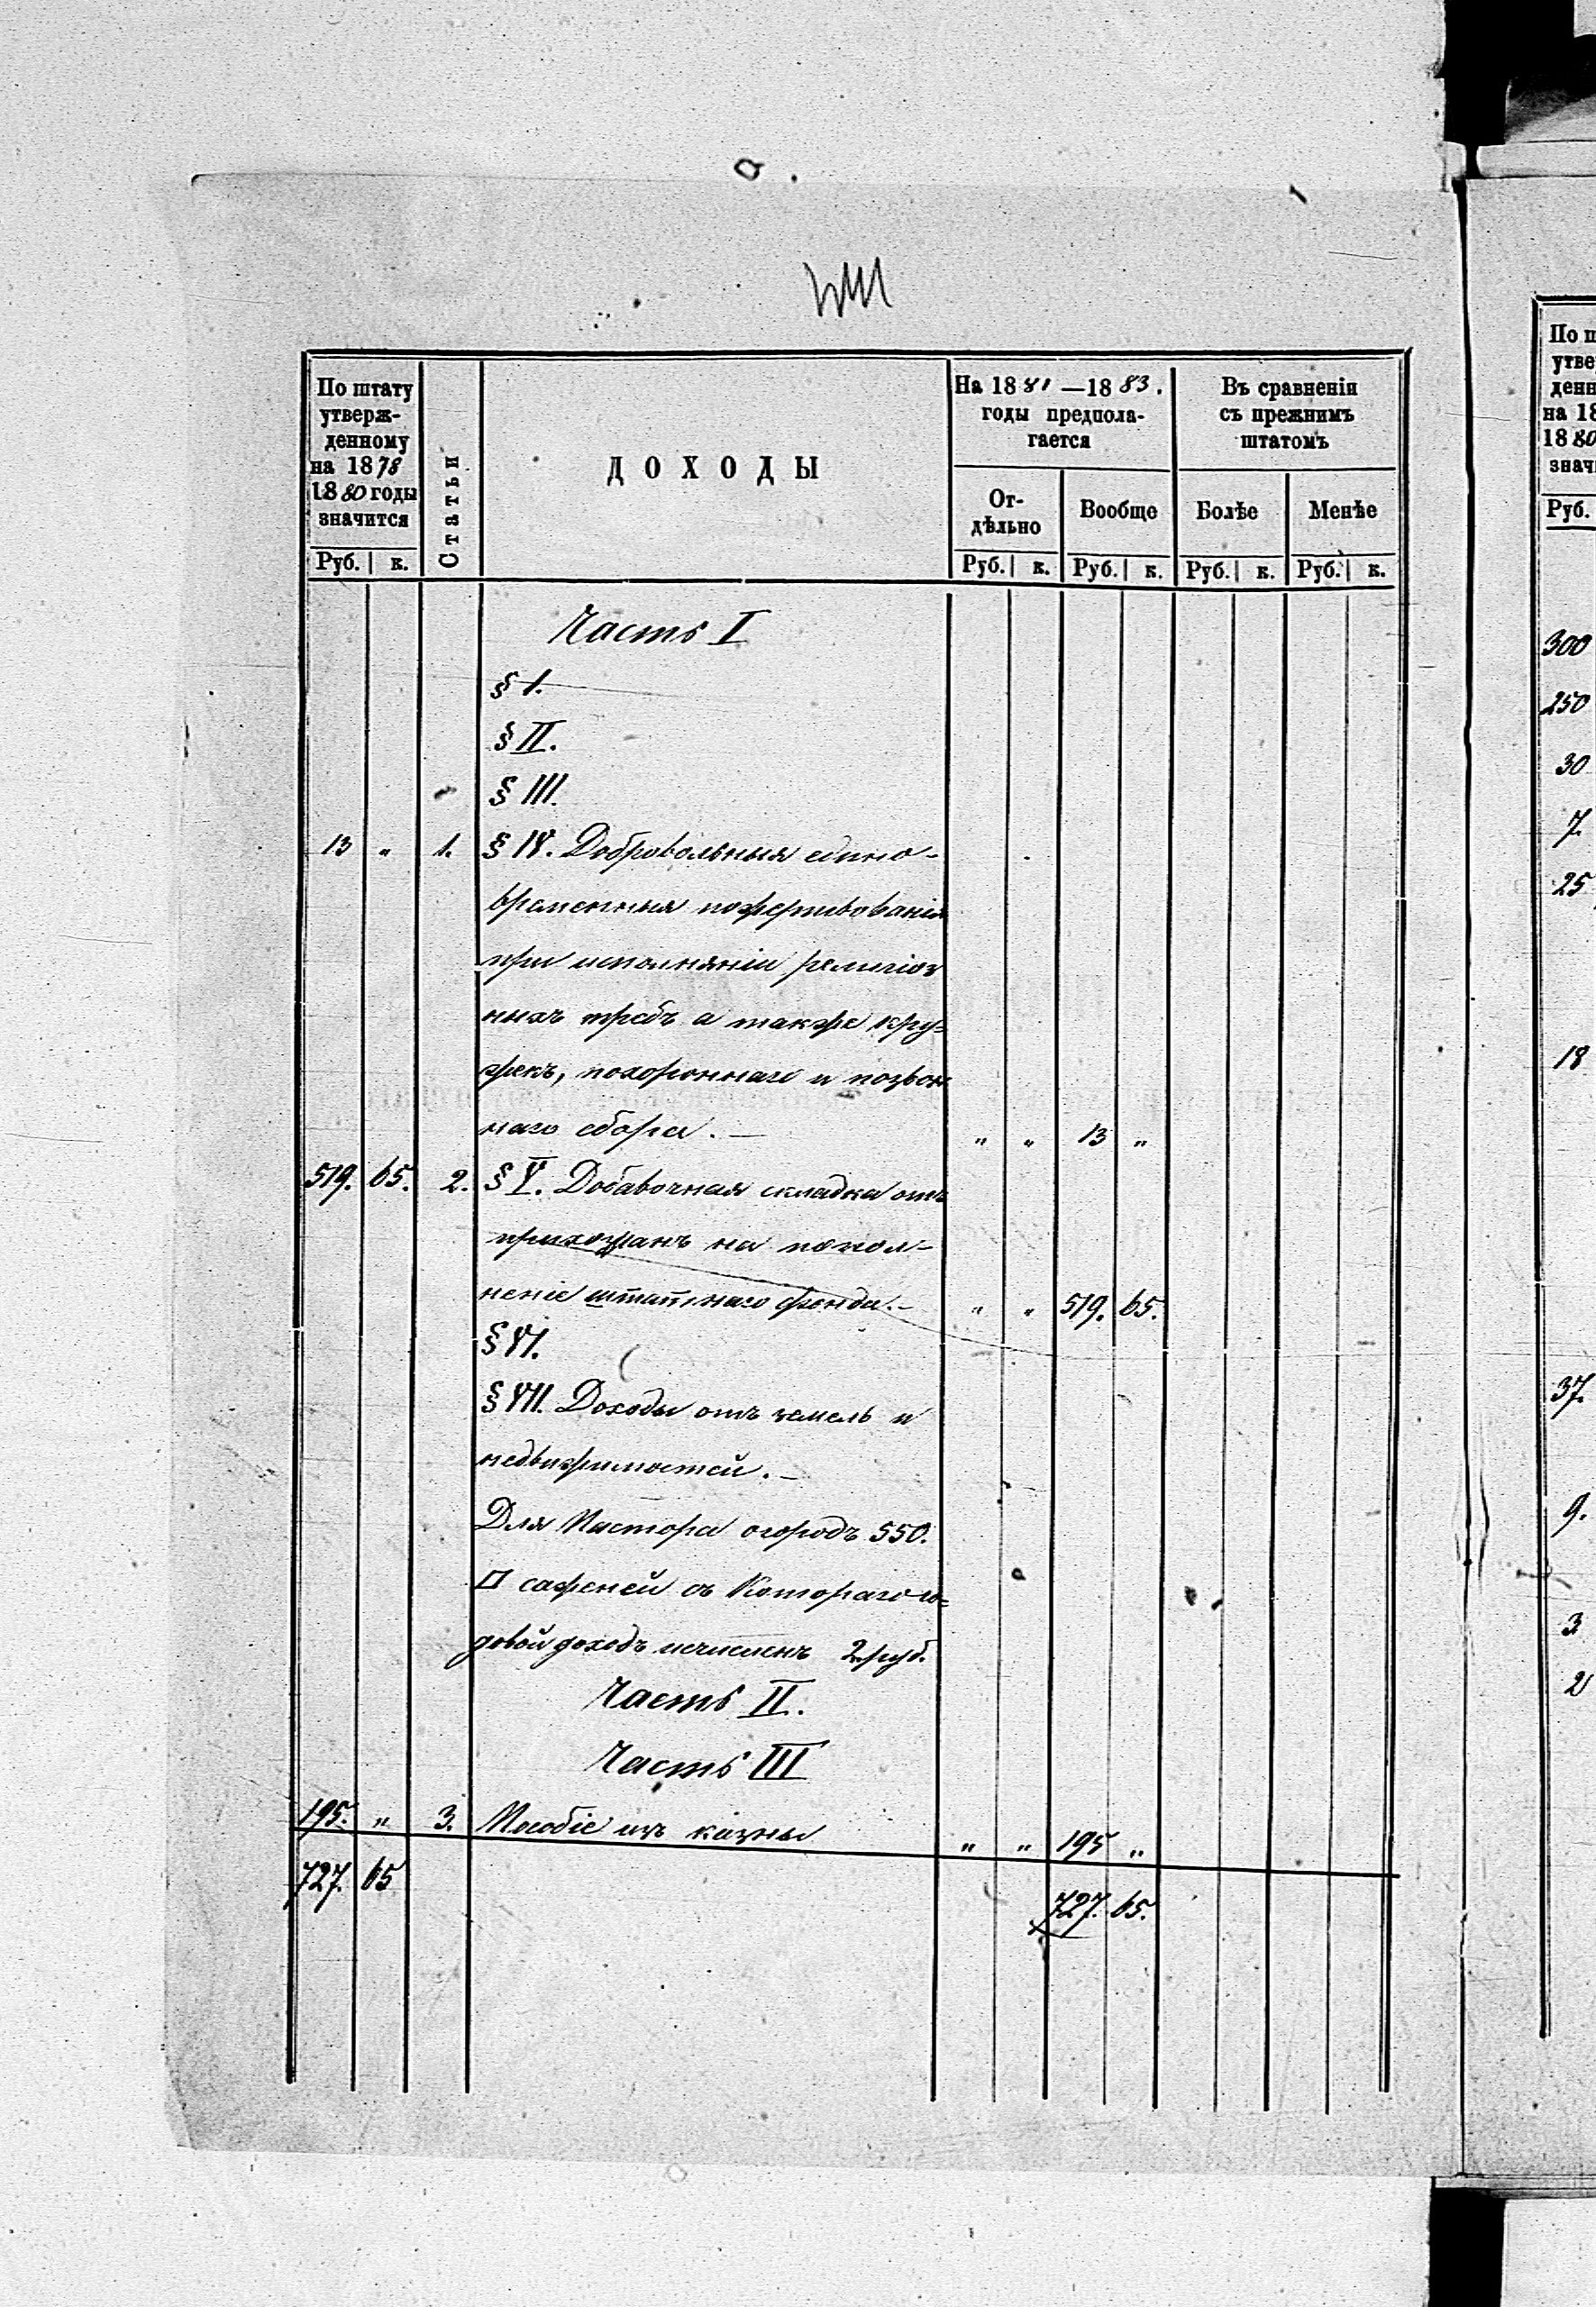 По штату утверж-
денному
на 1878
1880 годы
значится
Руб. к.
Статьи
ДОХОДЫ
На 1881—1883.
годы предпола-
гается
От-
дѣльно
Руб. к.
Вообще
Руб. к.
Въ сравненіи
съ прежнимъ
штатомъ
Болѣе
Руб. к.
Менѣе
Руб. к.
Часть I
§ I.
§ II.
§ III.
13 „ 1. § IV. Добровольныя едино-
временныя пожертвованія
при исполненіи религіоз
ныхъ требъ а также кру-
жекъ, похороннаго и позвон
наго сбора. — „ „ 13 „
519. 65. 2. § V. Добавочная складка отъ
прихожанъ на попол-
неніе штатнаго фонда. — „ „ 519. 65.
§ VI.
§ VII. Доходы отъ земель и
недвижимостей. —
Для Пастора огородъ 550.
□ саженей съ Котораго го-
довой доходъ исчисленъ 2 руб.
Часть II.
Часть III
195. „ 3. Пособіе изъ казны „ „ 195 „
727. 65 727. 65.
По ш
утве
денн
на 18
1880
знач
Руб.
300
250
30
7.
25
18
37.
9.
3
2